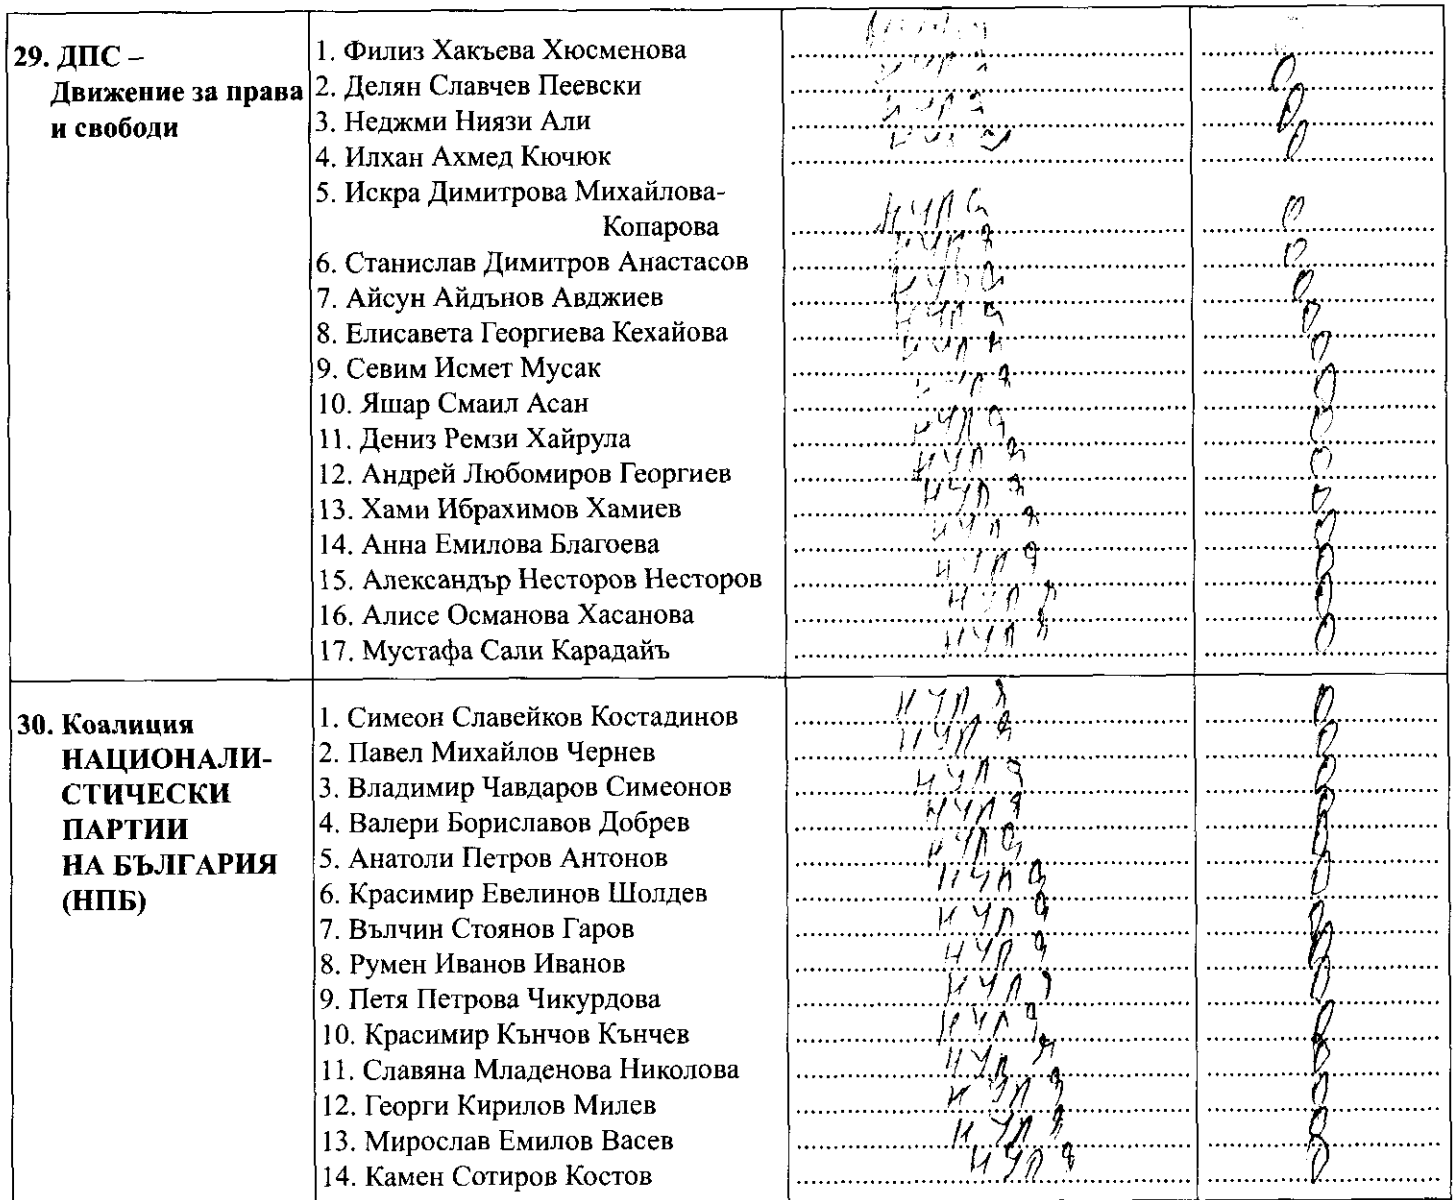 29. ДПС –
Движение за права
и свободи
1. Филиз Хакъева Хюсменова
2. Делян Славчев Пеевски нула 0
3. Неджми Ниязи Али нула 0
4. Илхан Ахмед Кючюк нула 0
5. Искра Димитрова Михайлова-
Копарова нула 0
6. Станислав Димитров Анастасов нула 0
7. Айсун Айдънов Авджиев нула 0
8. Елисавета Георгиева Кехайова нула 0
9. Севим Исмет Мусак нула 0
10. Яшар Смаил Асан нула 0
11. Дениз Ремзи Хайрула нула 0
12. Андрей Любомиров Георгиев нула 0
13. Хами Ибрахимов Хамиев нула 0
14. Анна Емилова Благоева нула 0
15. Александър Несторов Несторов нула 0
16. Алисе Османова Хасанова нула 0
17. Мустафа Сали Карадайъ нула 0
30. Коалиция
НАЦИОНАЛИ-
СТИЧЕСКИ
ПАРТИИ
НА БЪЛГАРИЯ
(НПБ)
1. Симеон Славейков Костадинов нула 0
2. Павел Михайлов Чернев нула 0
3. Владимир Чавдаров Симеонов нула 0
4. Валери Бориславов Добрев нула 0
5. Анатоли Петров Антонов нула 0
6. Красимир Евелинов Шолдев нула 0
7. Вълчин Стоянов Гаров нула 0
8. Румен Иванов Иванов нула 0
9. Петя Петрова Чикурдова нула 0
10. Красимир Кънчов Кънчев нула 0
11. Славяна Младенова Николова нула 0
12. Георги Кирилов Милев нула 0
13. Мирослав Емилов Васев нула 0
14. Камен Сотиров Костов нула 0